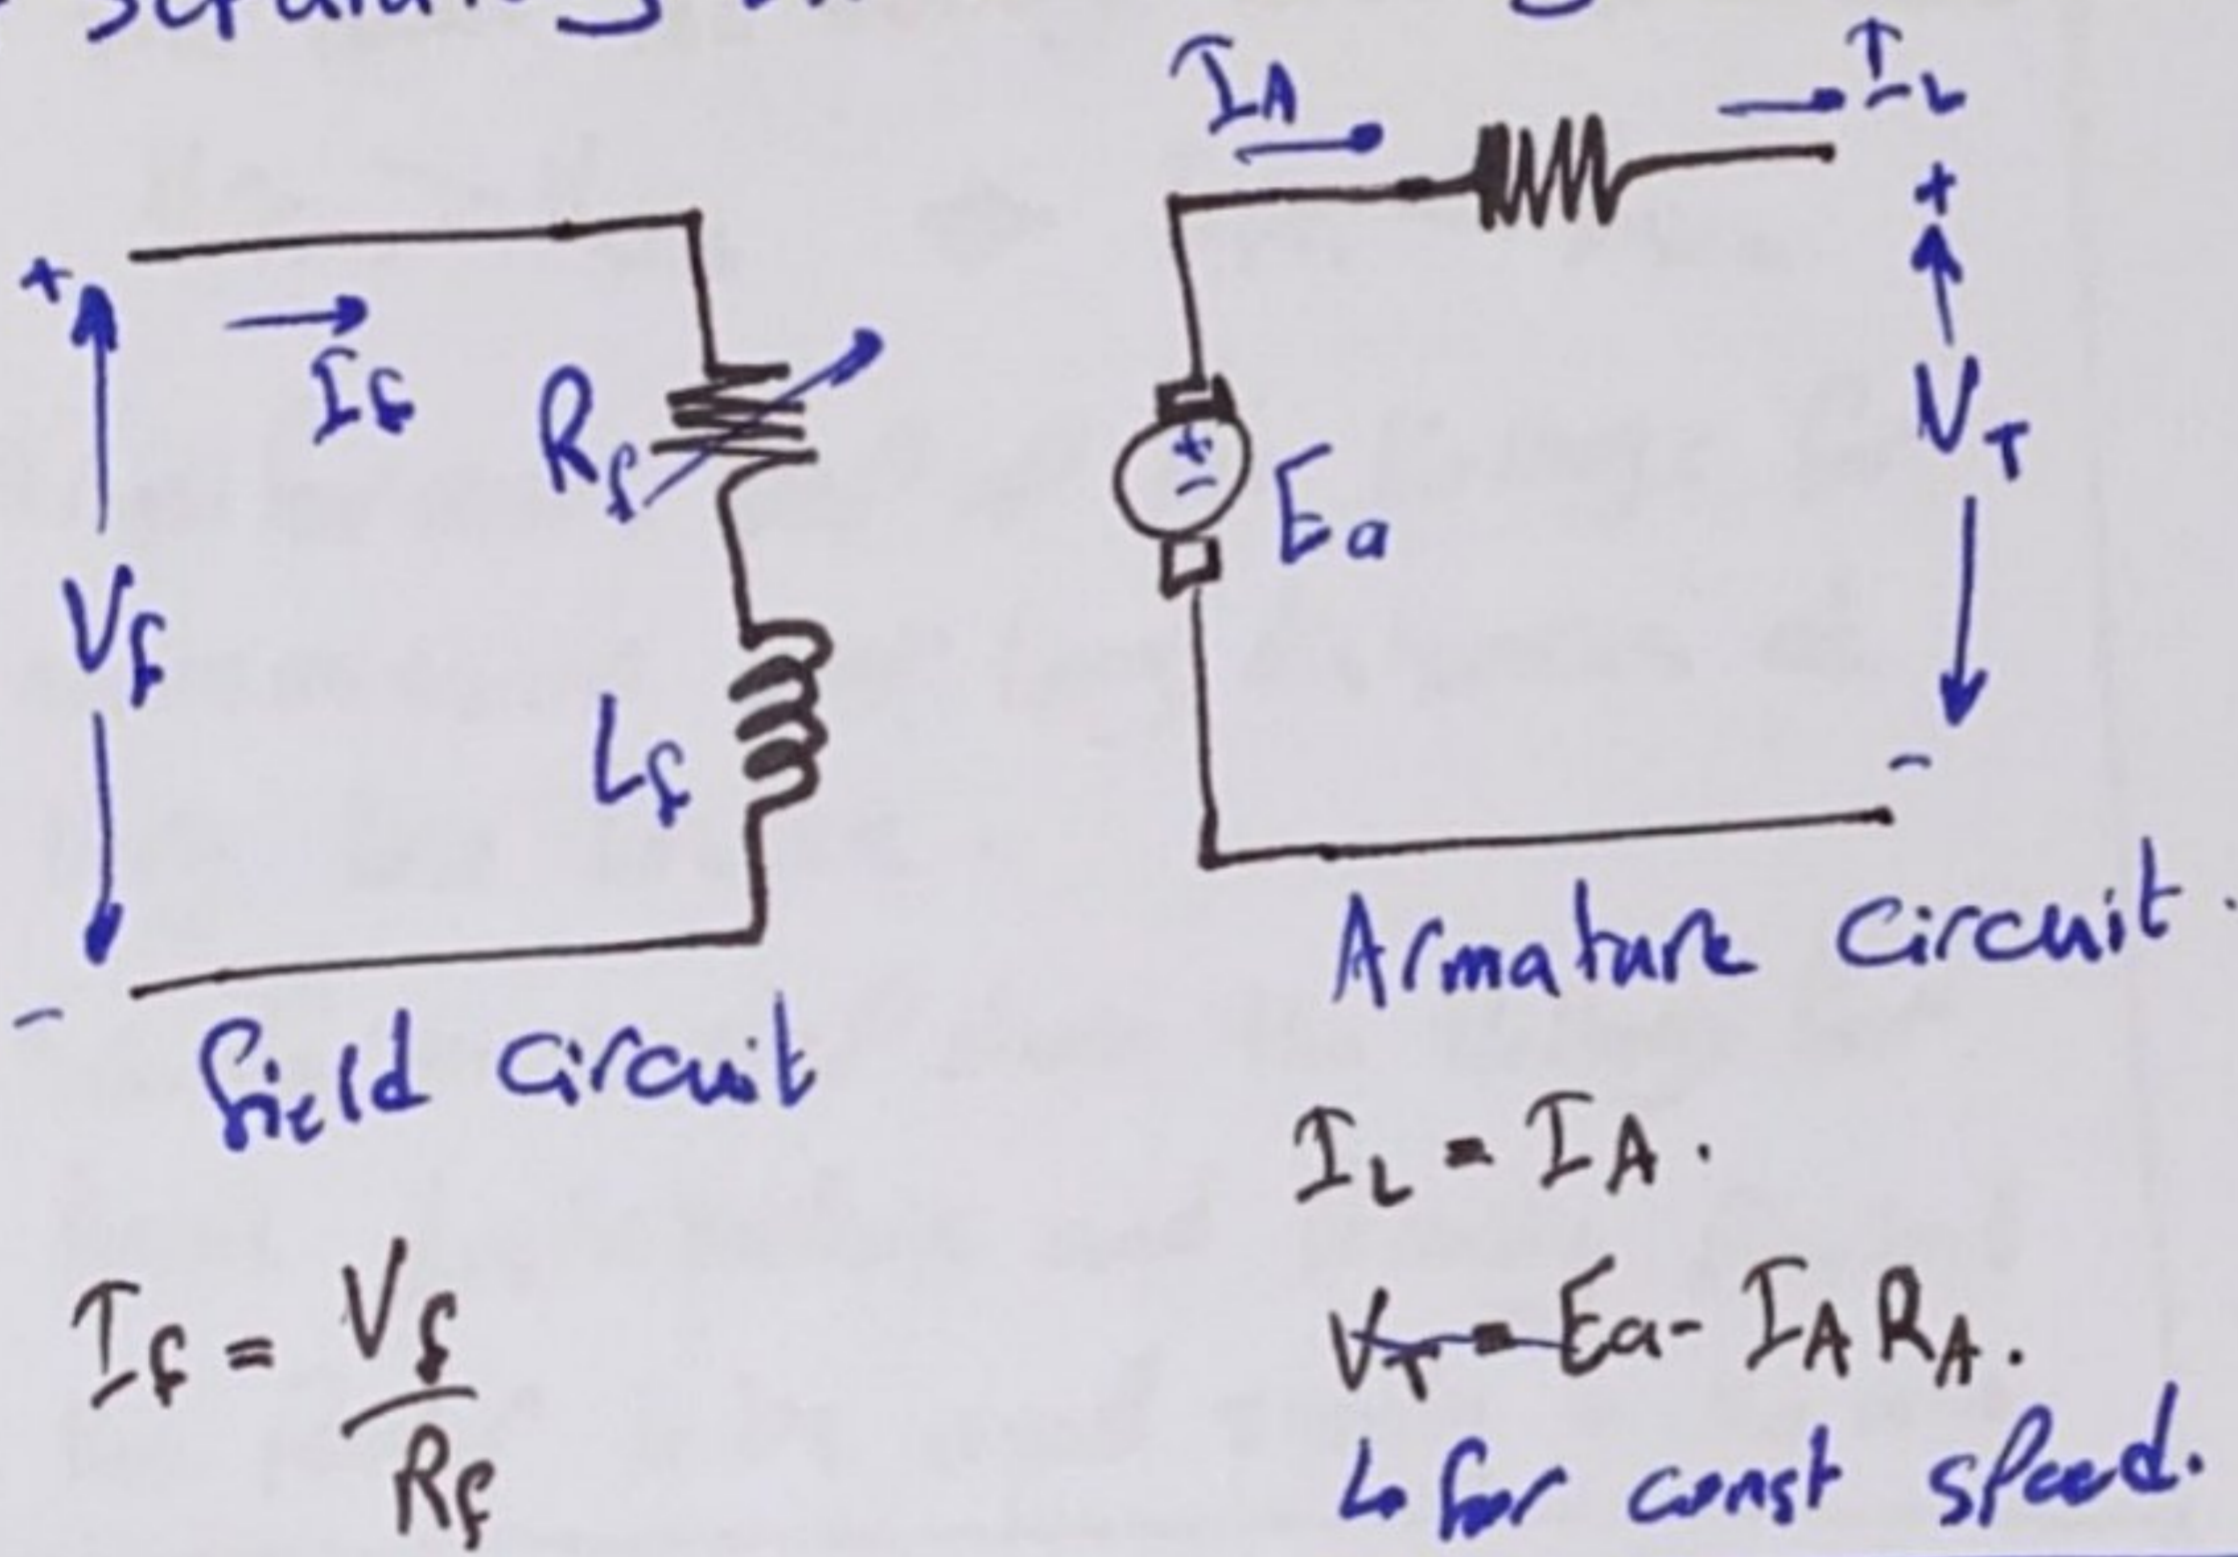 I_A
I_L
+
+
I_f
R_f
V_T
+
-
E_a
V_f
L_f
-
-
Armature Circuit.
field circuit
I_L = I_A.
I_f = V_f / R_f
V_T = Ea - I_A R_A.
↳ for const speed.